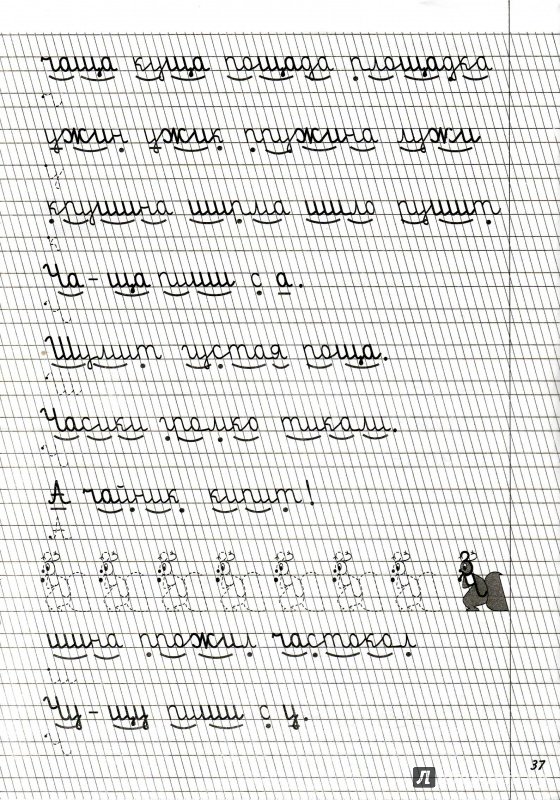 чаща куща пощада площадка
ужин ужик пружина лужи
крушина ширма шило пушит
Ча - ща пиши с а.
Шумит густая роща.
Часики громко тикали.
А чайник кипит!
шина прожил частокол
Чу - щу пиши с у.
37